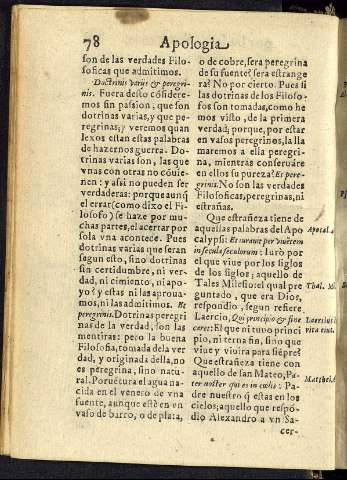 78 Apologia
son de las verdades Filo-
soficas que admitimos.
Doctrinis varijs & peregri-
nis. Fuera desto cōsidere-
mos sin passion, que son
dotrinas varias, y que pe-
regrinas, y veremos quan
lexos estan estas palabras
de hazernos guerra. Do-
trinas varias son, las que
vnas con otras no conuie-
nen: y assi no pueden ser
verdaderas: porque aunq̃
el errar (como dixo el Fi-
losofo) se haze por mu-
chas partes, el acertar por
sola vna acontece. Pues
dotrinas varias que seran
segun esto, sino dotrinas
sin certidumbre, ni ver-
dad, ni cimiento, ni apo-
yo? y estas ni las aproua-
mos, ni las admitimos. Et
peregrinis. Dotrinas peregri
nas de la verdad, son las
mentiras: pero la buena
Filosofia, tomada dela ver
dad, y originada della, no
es peregrina, sino natu-
ral. Porvētura el agua na-
cida en el venero de vna
fuente, aunque estè en vn
vaso de barro, o de plata,
o de cobre, sera peregrina
de su fuente? sera estrange
ra? No por cierto. Pues si
las dotrinas de los Filoso-
fos son tomadas, como he
mos visto, de la primera
verdad; porque, por estar
en vasos peregrinos, la lla
maremos a ella peregri-
na, mientras conseruáre
en ellos su pureza? Et pere-
grinis. No son las verdades
Filosoficas, peregrinas, ni
estrañas.
Que estrañeza tiene de
aquellas palabras del Apo
calypsi: Et iurauit per viuētem
in secula seculorum: Iurò por
el que viue por los siglos
de los siglos; aquello de
Tales Milesio: el qual pre
guntado, que era Dios,
respondio, segun refiere
Laercio, Qui principio & fine
caret: El que ni tuuo princi
pio, ni terna fin, sino que
viue y viuira para siēpre?
Que estrañeza tiene con
aquello de san Mateo, Pa-
ter noster qui es in cœlis: Pa-
dre nuestro q̃ estas en los
cielos; aquello que respō-
dio Alexandro a vn Sa-
cer-
Apocal.
Thal. Mi
Laertius
vita eius.
Matthei.